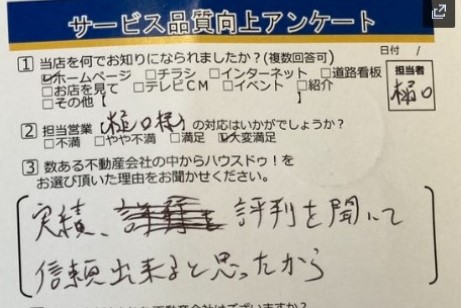 サービス品質向上アンケート
日付 /
1 当店を何でお知りになられましたか?(複数回答可)
☑ホームページ □チラシ □インターネット □道路看板
□お店を見て □テレビCM □イベント □紹介
□その他【 】
担当者
樋口
2 担当営業(樋口様)の対応はいかがでしょうか?
□不満 □やや不満 □満足 ☑大変満足
3 数ある不動産会社の中からハウスドゥ!を
お選び頂いた理由をお聞かせください。
実績、評判を聞いて
信頼出来ると思ったから